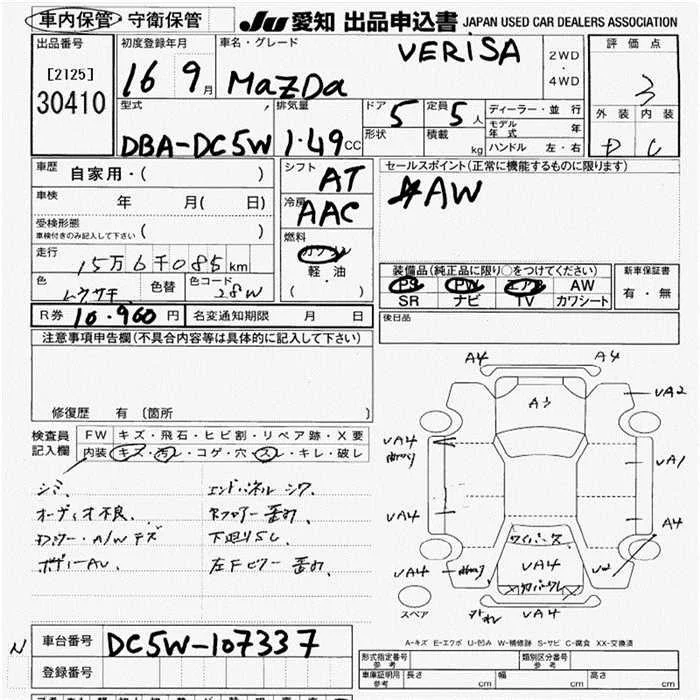 車内保管・守衛保管
JU 愛知 出品申込書 JAPAN USED CAR DEALERS ASSOCIATION
出品番号
[2125]
30410
初度登録年月
16 9月
車名・グレード
MaZDa VERiSA
2WD
・
4WD
評価点
3
外装 内装
D C
型式
DBA-DC5W
排気量
1.49cc
ドア 5
形状
定員 5人
積載 kg
ディーラー・並 行
モデル年式 年
ハンドル 左・右
車歴 自家用・( )
車検 年 月( 日)
受検形態
車検付きのみ記入して下さい ( )
走行 15万6千085km
色
色替
色コード 28W
シフト AT
冷房 AAC
燃料
ガソリン
軽油
( ・ )
セールスポイント(正常に機能するものに限ります)
AW
装備品(純正品に限り○をつけてください)
PS PW エアB AW
SR ナビ TV カワシート
新車保証書
有・無
R券 10.960円 名変通知期限 月 日
後日品
注意事項申告欄(不具合内容等は具体的に記入して下さい)
修復歴 有 〔箇所 〕
検査員
記入欄
FW キズ・飛石・ヒビ割・リペア跡・X要
内装 キズ・汚レ・コゲ・穴・スレ・キレ・破レ
シミ、
オーディオ不良、
ボディーAU、
エンドパネルシワ、
Rフロアー歪み、
下廻りSし
左Fピラー歪み、
A4 A4
A3
UA2
UA4
UA1
UA4
A4
ワイパーズレ
UA4
UA4
UA4
スペア
A-キズ E-エクボ U-凹み W-補修跡 S-サビ C-腐食 XX-交換済
N
車台番号 DC5W-107337
登録番号
形式指定番号
参考
類別区分番号
参考
車庫証明用
参考
長さ cm 幅 cm 高さ cm